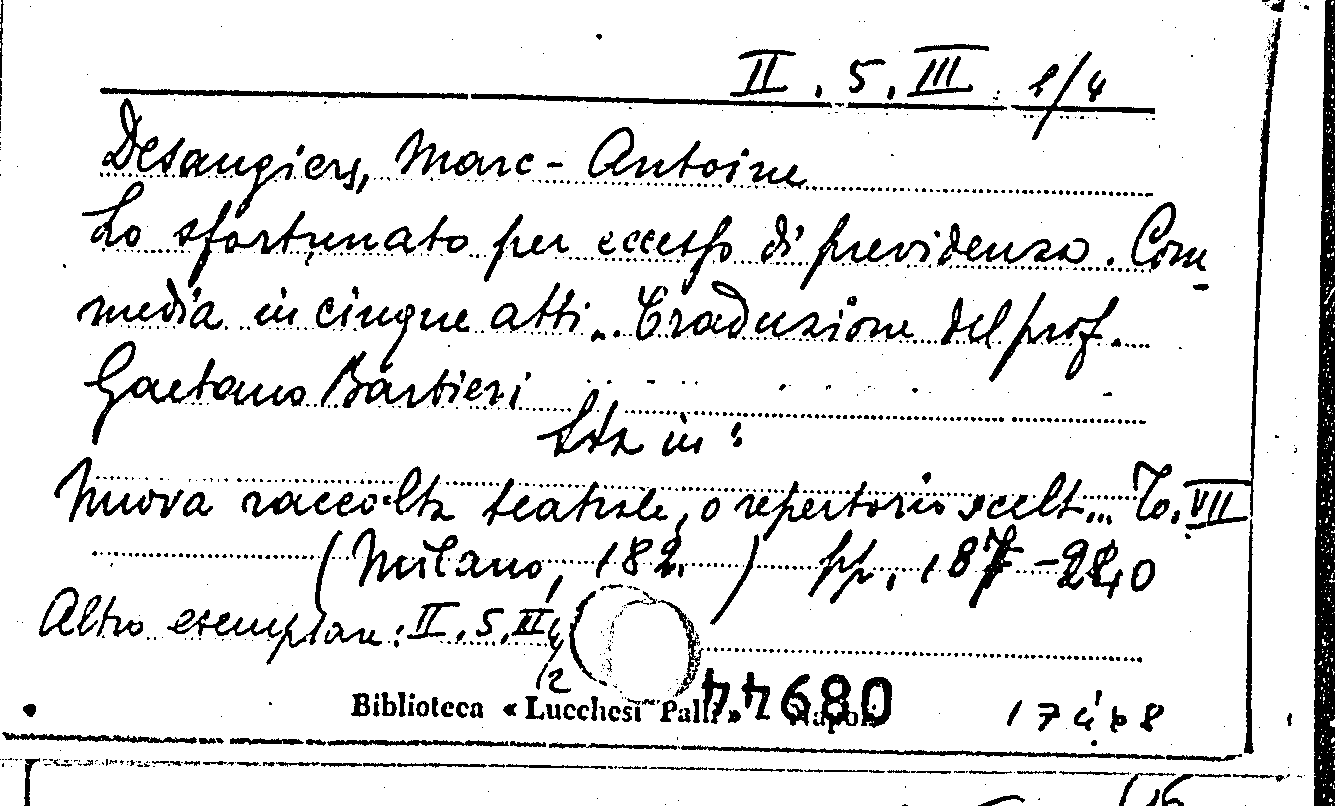 II. 5. III 1/4
Desaugiers, Marc-Antoine
Lo sfortunato per eccesso di previdenza. Com-
media in cinque atti.. Traduzione del prof.
Gaetano Barbieri
Sta in:
Nuova raccolta teatrale, o repertorio scelt... To. VII
(Milano, 182. ) pp. 187-240
Altro esemplare: II. 5. III
Biblioteca « Lucchesi Palli » Napoli
44680